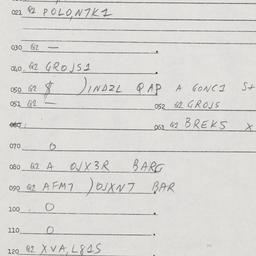 021 G2 POLO,N7K1
030 G2 —
040 G2 GROJS1
050 G2 $ )INDZL QAP A GONC1 S+
051 G2 — 052 G2 GROJS
060 061 G2 BREKS X
070 O
080 G2 A OJX3R BARG
090 G2 AFM7 )OJXN7 BAR
100 O
110 O
120 G2 XVA,L81S